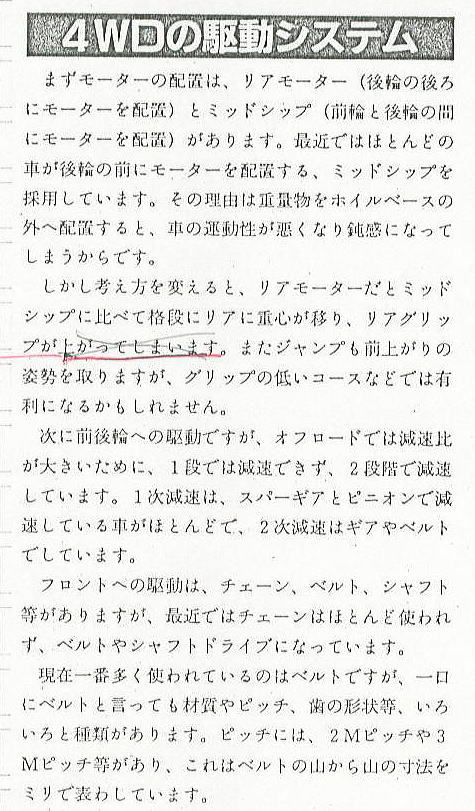 4WDの駆動システム
まずモーターの配置は、リアモーター（後輪の後ろ
にモーターを配置）とミッドシップ（前輪と後輪の間
にモーターを配置）があります。最近ではほとんどの
車が後輪の前にモーターを配置する、ミッドシップを
採用しています。その理由は重量物をホイルベースの
外へ配置すると、車の運動性が悪くなり鈍感になって
しまうからです。
しかし考え方を変えると、リアモーターだとミッド
シップに比べて格段にリアに重心が移り、リアグリッ
プが上がってしまいます。またジャンプも前上がりの
姿勢を取りますが、グリップの低いコースなどでは有
利になるかもしれません。
次に前後輪への駆動ですが、オフロードでは減速比
が大きいために、１段では減速できず、２段階で減速
しています。１次減速は、スパーギアとピニオンで減
速している車がほとんどで、２次減速はギアやベルト
でしています。
フロントへの駆動は、チェーン、ベルト、シャフト
等がありますが、最近ではチェーンはほとんど使われ
ず、ベルトやシャフトドライブになっています。
現在一番多く使われているのはベルトですが、一口
にベルトと言っても材質やピッチ、歯の形状等、いろ
いろと種類があります。ピッチには、２Ｍピッチや３
Ｍピッチ等があり、これはベルトの山から山の寸法を
ミリで表わしています。